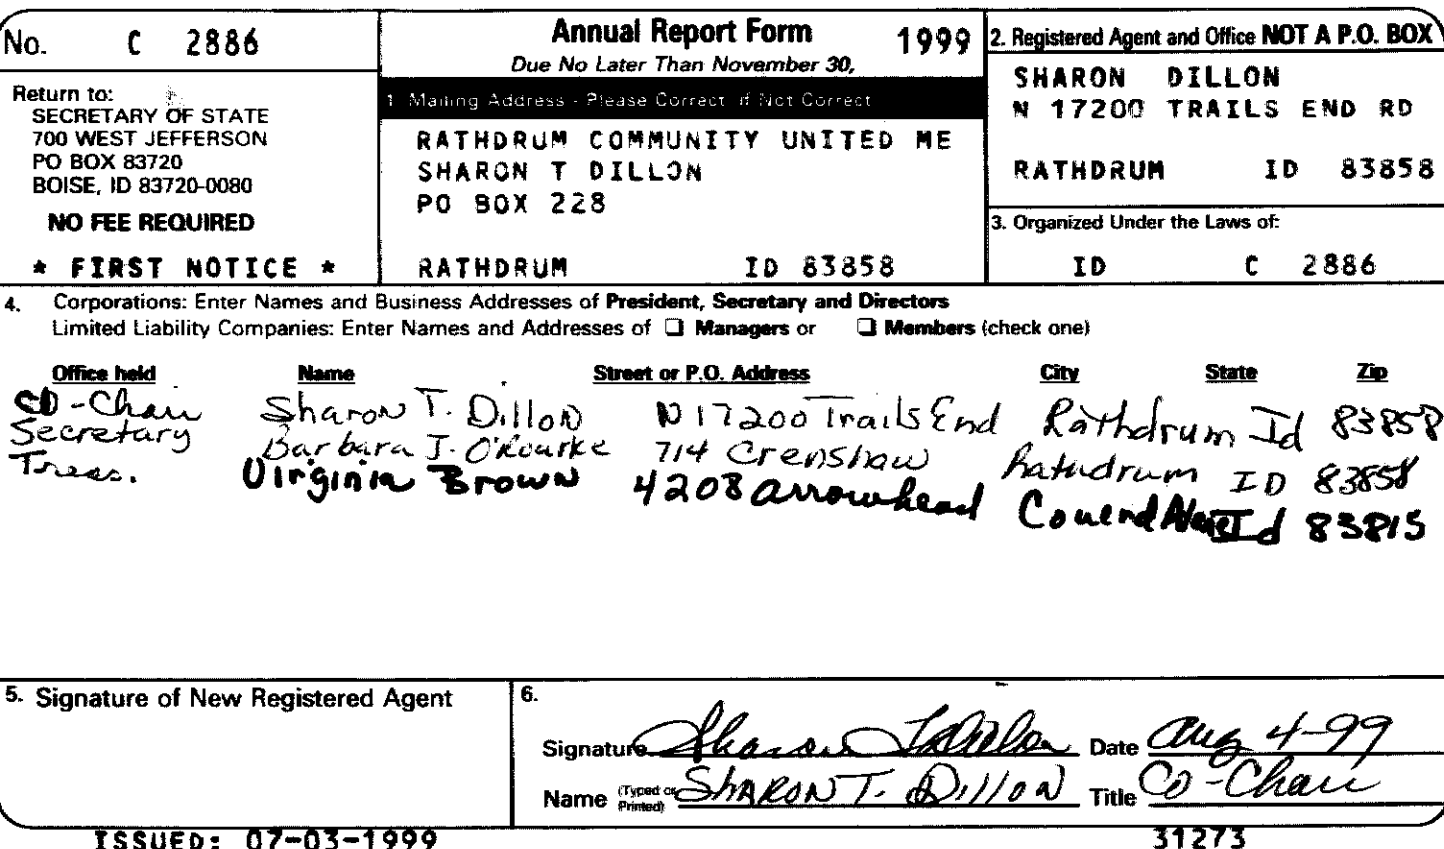 No. C 2886
Annual Report Form 1999
Due No Later Than November 30,
Return to:
SECRETARY OF STATE
700 WEST JEFFERSON
PO BOX 83720
BOISE, ID 83720-0080
NO FEE REQUIRED
* FIRST NOTICE *
1. Mailing Address - Please Correct If Not Correct
RATHDRUM COMMUNITY UNITED ME
SHARON T DILLON
PO BOX 228
RATHDRUM ID 83858
2. Registered Agent and Office NOT A P.O. BOX
SHARON DILLON
N 17200 TRAILS END RD
RATHDRUM ID 83858
3. Organized Under the Laws of:
ID C 2886
4. Corporations: Enter Names and Business Addresses of President, Secretary and Directors
Limited Liability Companies: Enter Names and Addresses of ❑ Managers or ❑ Members (check one)
Office held Name Street or P.O. Address City State Zip
CO-Chair Sharon T. Dillon N 17200 Trails End Rathdrum Id 83858
Secretary Barbara J. O'Rourke 714 Crenshaw Rathdrum ID 83858
Treas. Virginia Brown 4208 Arrowhead Id 83815
5. Signature of New Registered Agent
6.
Signature Sharon T Dillon Date Aug 4-99
Name (Typed or Printed) SHARON T. DILLON Title Co-Chair
ISSUED: 07-03-1999
31273